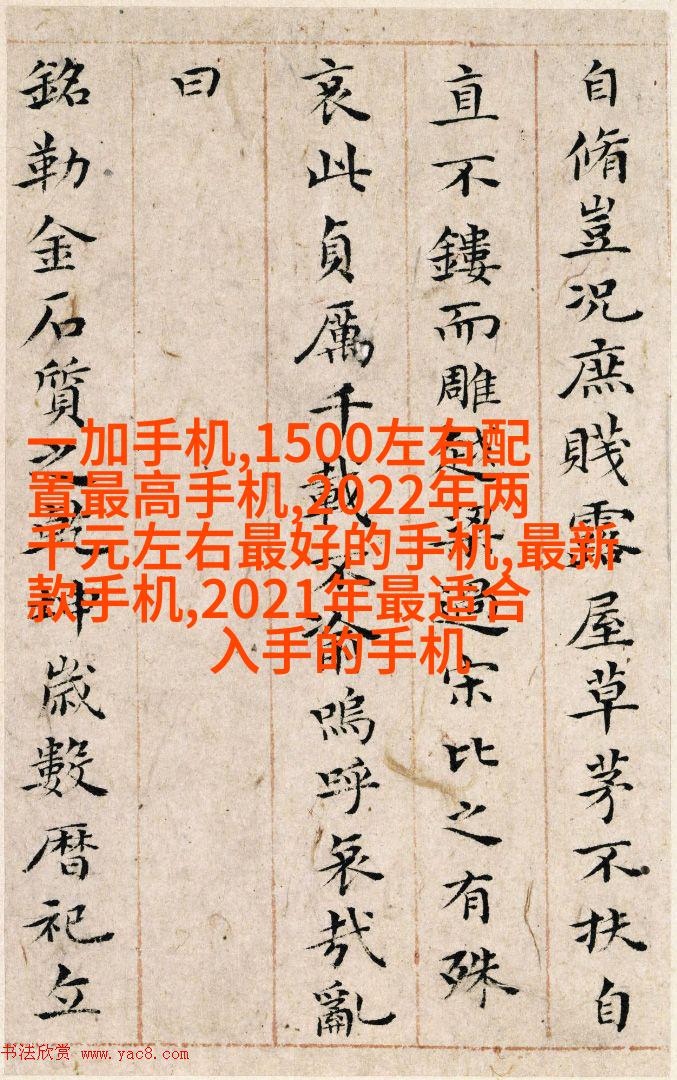 自脩豈況庶賤露屋草茅不扶自
直不鏤而雕越梁過宋比之有殊
哀此貞厲千載不渝嗚呼哀哉亂
曰
銘勒金石質之乾坤歲數暦祀丘
一加手机,1500左右配
置最高手机,2022年两
千元左右最好的手机,最新
款手机,2021年最适合
入手的手机
书法欣赏 www.yac8.com